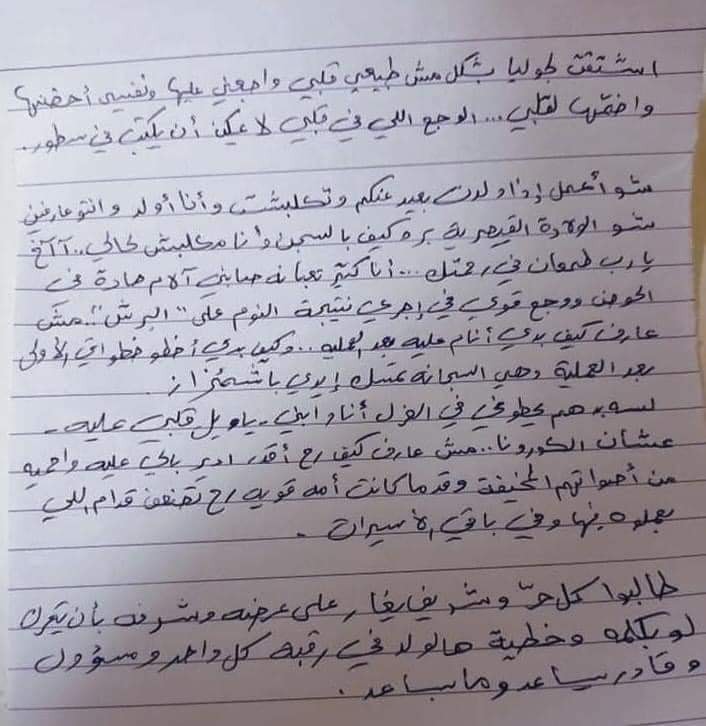 اشتقت لجوليا بشكل مش طبيعي قلبي واجعني عليها ونفسي أحضنها
واضمّها لقلبي... الوجع اللي في قلبي لا يمكن أن يكتب في سطور.
شو أعمل إذا ولدت بعيد عنكم وتكلبشت وأنا أولد وانتو عارفين
شو الولادة القيصرية بره كيف بالسجن وأنا مكلبش لحالي.. آآآخ
يا رب طمعان في رحمتك... أنا كثير تعبانه صايبني آلام حادة في
الحوض ووجع قوي في إجري نتيجة النوم على "البرش".. مش
عارف كيف بدي أنام عليه بعد العملية.. وكيف بدي أخطو خطواتي الأولى
بعد العملية وهي السجانه تمسك إيدي باشمئزاز.
لسه بدهم يحطوني في العزل أنا وابني - يا ويل قلبي عليه -
عشان الكورونا.. مش عارف كيف رح أقدر ادير بالي عليه واحميه
من أصواتهم المخيفة وقد ما كانت أمه قويه رح تضعف قدام اللي
بعملوه فيها وفي باقي الأسيرات.
طالبوا كل حرّ وشريف يغار على عرضه وشرفه بأن يتحرك
لو بكلمه وخطية هالولد في رقبة كل واحد ومسؤول
وقادر يساعد وما يساعد.